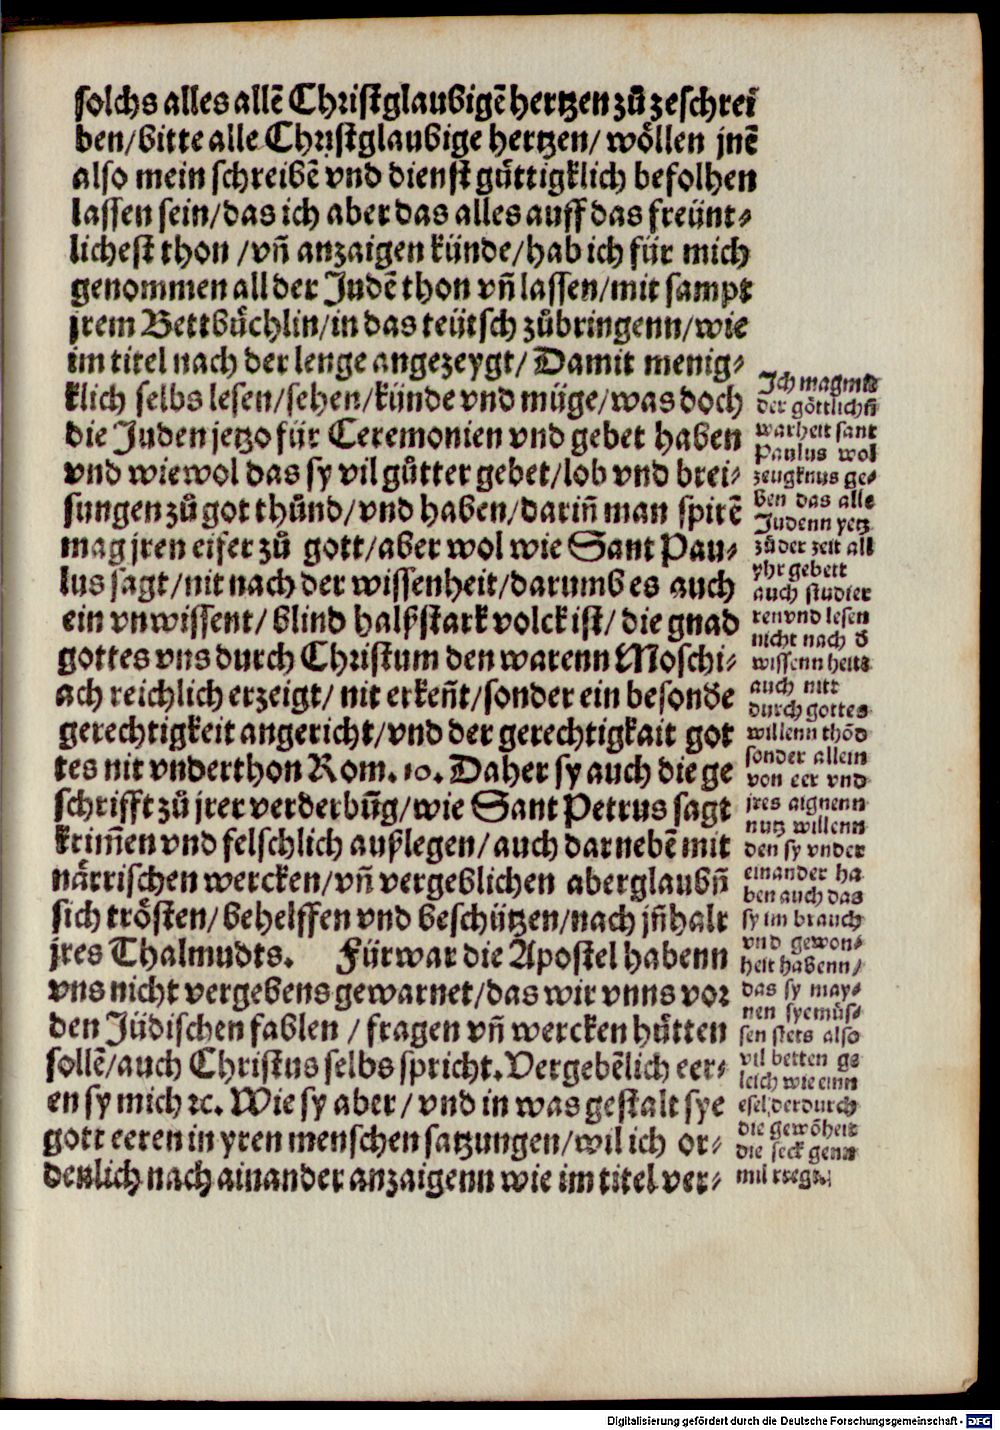 solchs alles allē Christglaubigē hertzen zů zeschrei
ben/bitte alle Christglaubige hertzen/ wöllen jnē
also mein schreibē vnd dienst güttigklich befolhen
lassen sein/das ich aber das alles auff das freünt⸗
lichest thon /vñ anzaigen künde/hab ich für mich
genommen all der Judē thon vñ lassen/mit sampt
jrem Bettbüchlin/in das teütsch zůbringenn/wie
im titel nach der lenge angezeygt/ Damit menig⸗
klich selbs lesen/sehen/künde vnd müge/was doch
die Juden jetzo für Ceremonien vnd gebet haben
vnd wiewol das sy vil gůtter gebet/lob vnd brei⸗
sungen zů got thůnd/vnd haben/dariñ man spirē
mag jren eifer zů gott/aber wol wie Sant Pau⸗
lus sagt/nit nach der wissenheit/darumb es auch
ein vnwissent/ blind halßstark volck ist/ die gnad
gottes vns durch Christum den warenn Moschi⸗
ach reichlich erzeigt/ nit erkeñt/sonder ein besonde
gerechtigkeit angericht/vnd der gerechtigkait got
tes nit vnderthon Rom. 10. Daher sy auch die ge
schrifft zů jrer verderbũg/wie Sant Petrus sagt
krim̃en vnd felschlich außlegen/auch darnebē mit
närrischen wercken/vñ vergeblichen aberglaubñ
sich trösten/behelffen vnd beschützen/nach jñhalt
jres Thalmudts. Fürwar die Apostel habenn
vns nicht vergebens gewarnet/das wir vnns vor
den Jüdischen fablen / fragen vñ wercken hütten
sollē/auch Christus selbs spricht. Vergebēlich eer⸗
en sy mich ꝛc. Wie sy aber/ vnd in was gestalt sye
gott eeren in yren menschen satzungen/wil ich or⸗
denlich nach ainander anzaigenn wie im titel ver⸗
Ich mag mit
der göttlichñ
warheit sant
Paulus wol
zeugknus ge⸗
ben das alle
Judenn yetz
zů der zeit all
yhr gebett
auch studier
ren vnd lesen
nicht nach d̃
wissenn heitt
auch nitt
durch gottes
willenn thõd
sonder allein
von eer vnd
jres aignenn
nutz willenn
den sy vnder
einander ha
ben auch das
sy im brauch
vnd gewon⸗
heit habenn/
das sy may⸗
nen sye müs⸗
sen stets also
vil betten ge
leich wie einn
esel, der durch
die gewõheit
die seck genn
mil tregt.
Digitalisierung gefördert durch die Deutsche Forschungsgemeinschaft - DFG